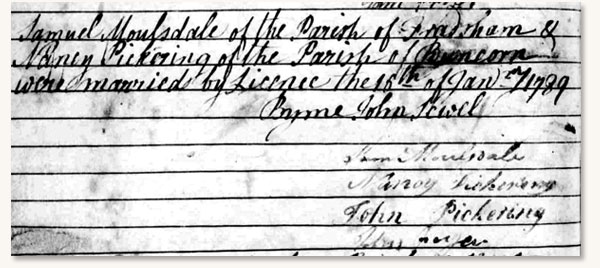 Samuel Moulsdale of the Parish of Frodsham &
Nancy Pickering of the Parish of Runcorn
were married by Licence the 16th of Jany
By me John Sewel
Sam Moulsdale
Nancy Pickering
John Pickering